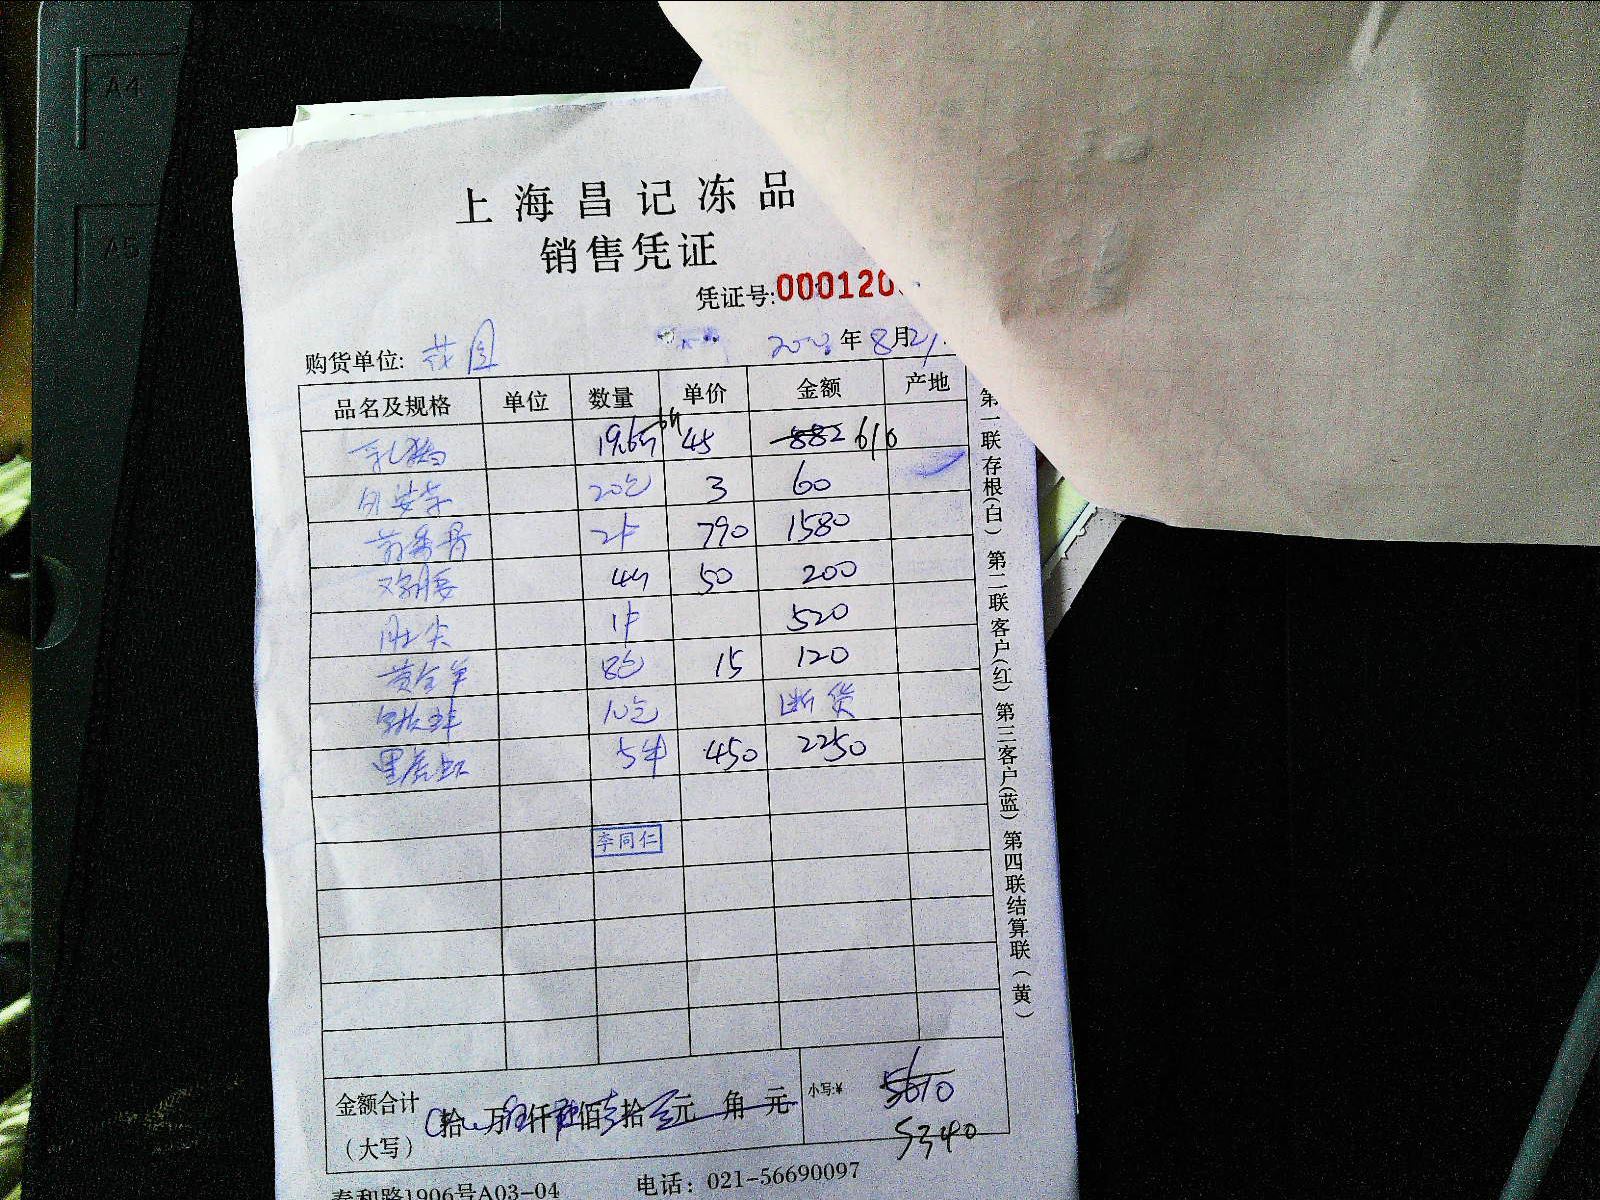 A4
A5
上海昌记冻品
销售凭证
凭证号:000120
购货单位: 花园 年8月21
品名及规格 单位 数量 单价 金额 产地
乳鸽 19.6斤 45 882 616
20包 3 60
2件 790 1580
4斤 50 200
肚尖 1件 520
黄金羊 8包 15 120
10包 断货
黑虎虾 5件 450 2250
李同仁
金额合计 拾 万 仟 佰 拾 元 角 元 小写:¥ 5610
（大写） 5340
泰和路1906号A03-04 电话：021-56690097
第一联存根(白) 第二联客户(红) 第三客户(蓝) 第四联结算联(黄)